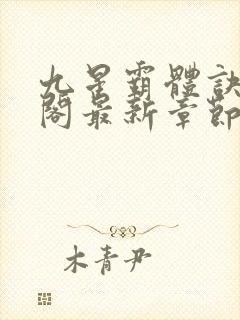 九星霸體訣
閣最新章節
木青尹